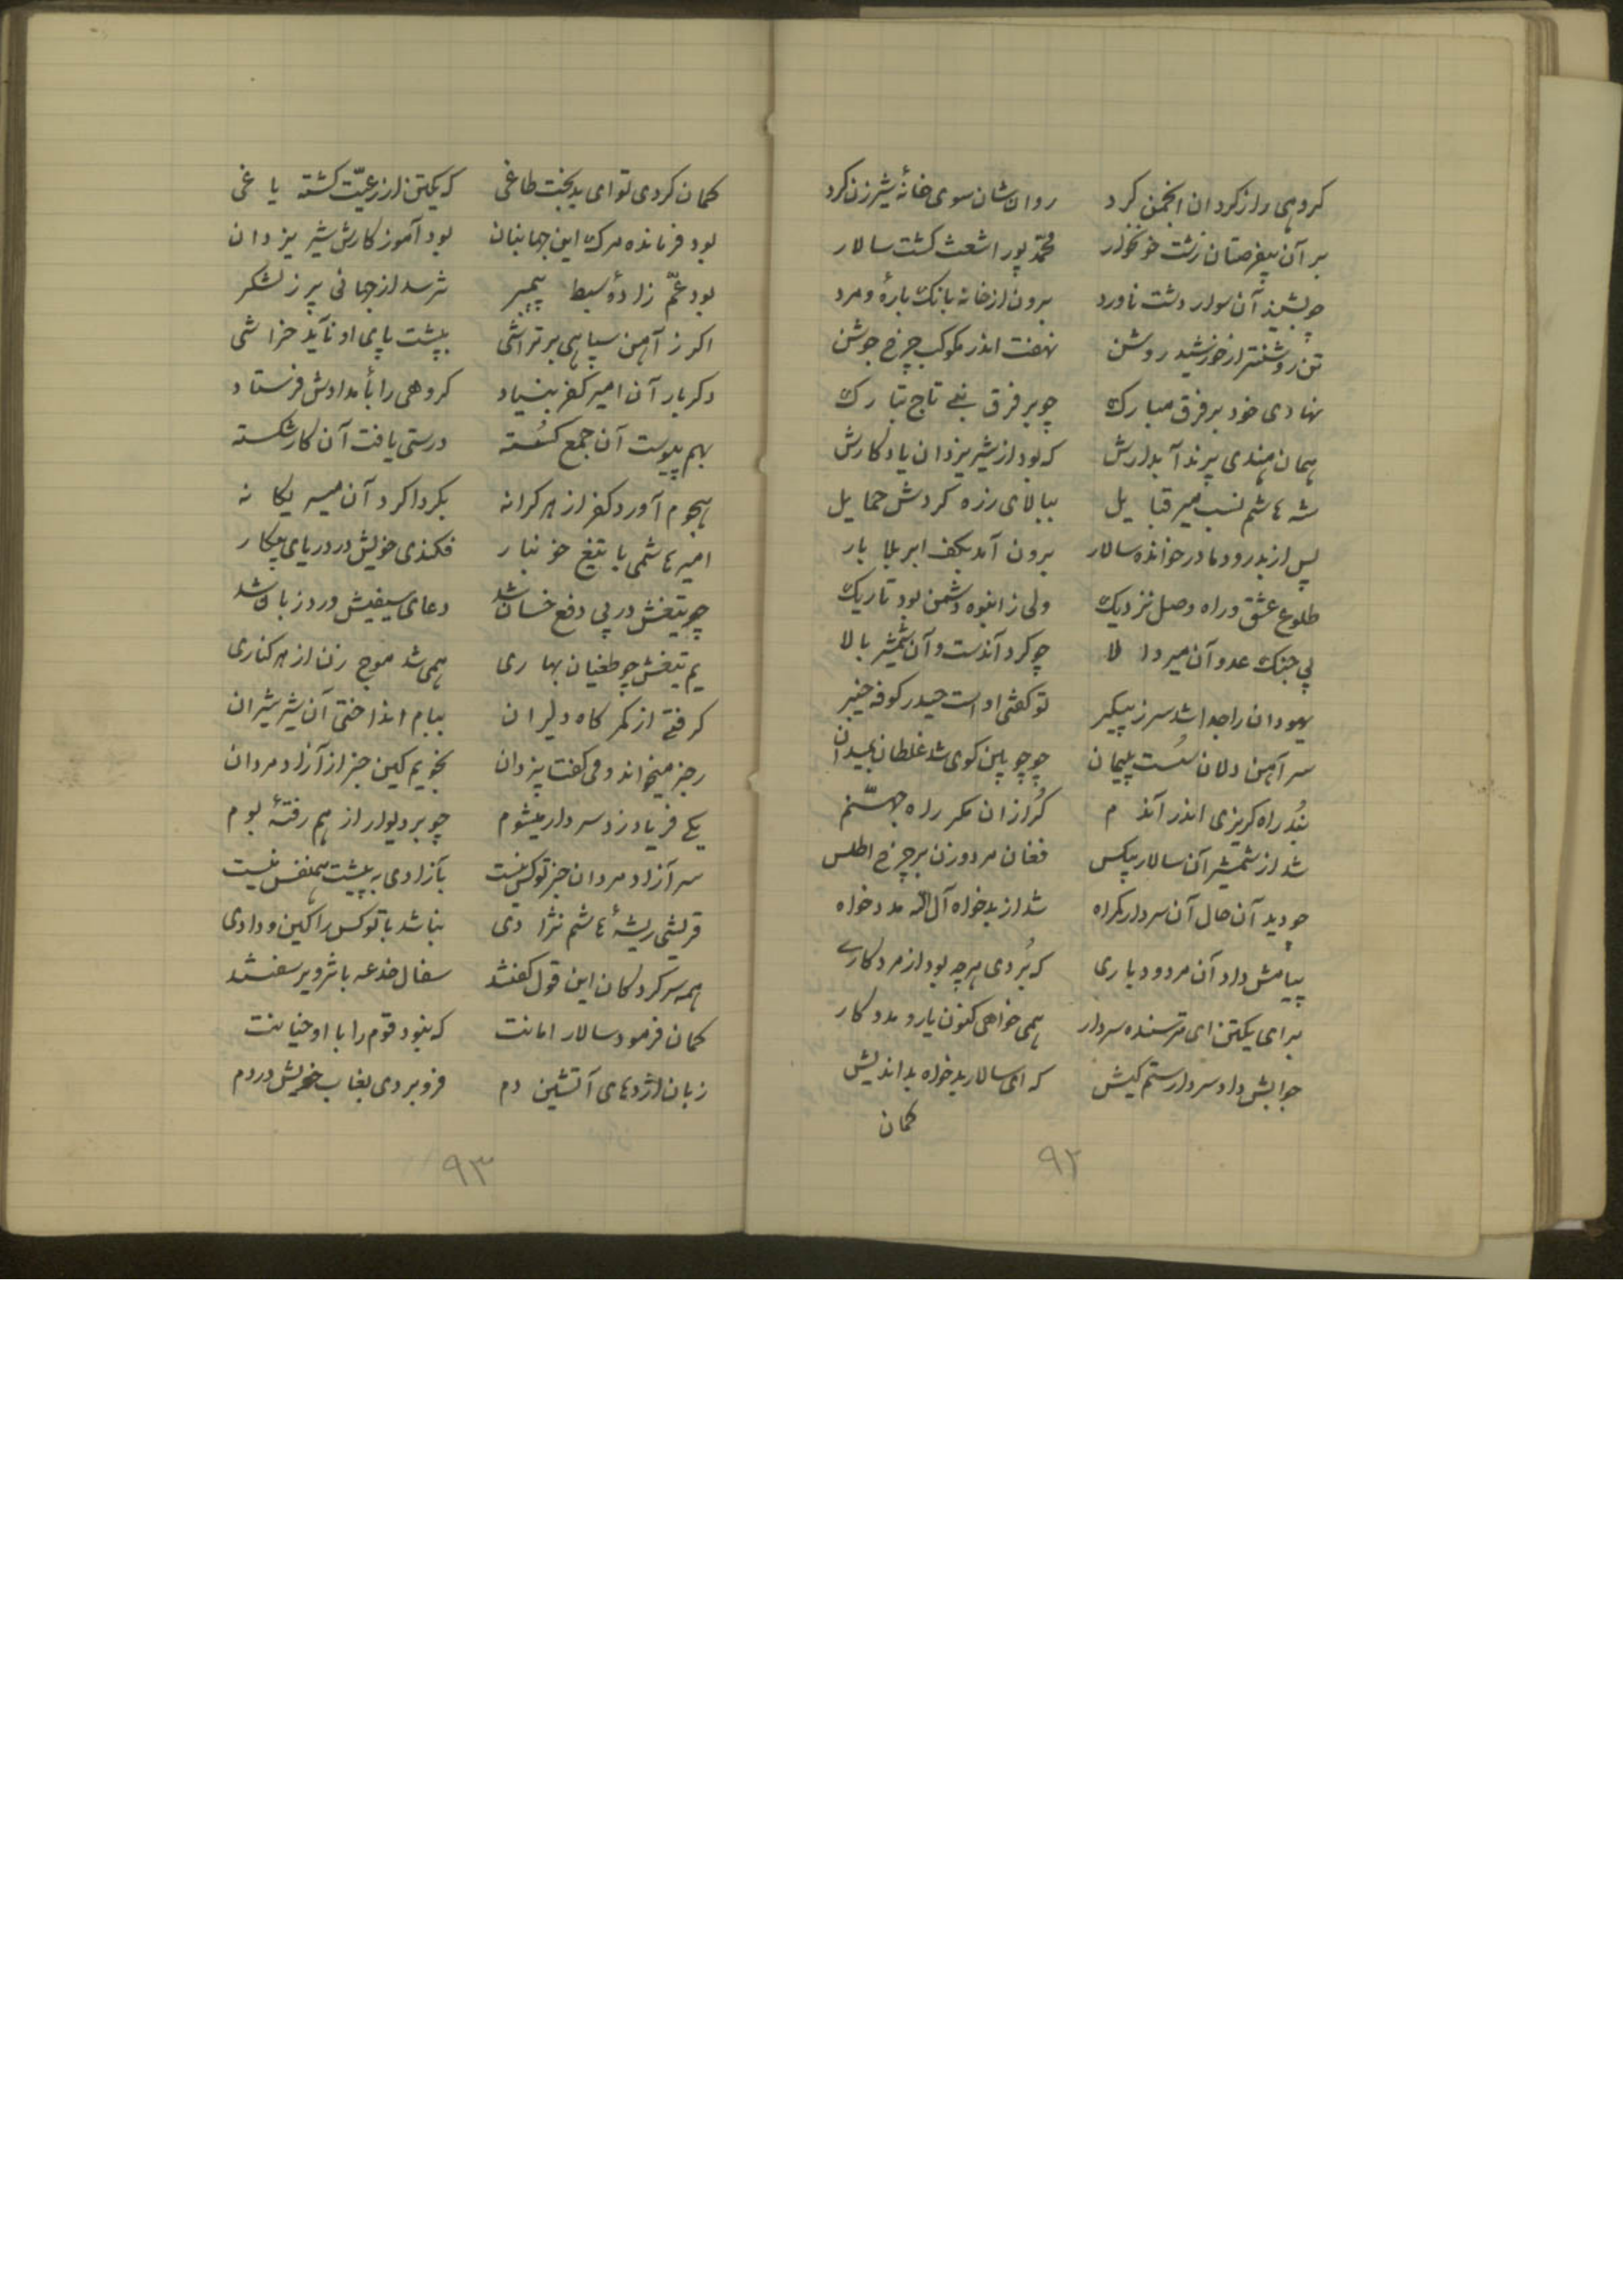 کروهی را ز کردان انجمن کرد روان شان سوی خانهٔ شیرزن کرد
بر آن بیفرصتان زشت خونخوار محمّد پور اشعث کشت سالار
چو بشنید آن سوار دشت ناورد برون از خانه بانک باره و مرد
تن روشنتر از خورشید روشن نهفت اندر مکوکب چرخ جوشن
نهادی خود بر فرق مبارک چو بر فرق نبی تاج تبارک
همان هندی پرند آبدارش که بود از شیر یزدان یادکارش
شه هاشم نسب میر قبایل ببالای زره کردش حمایل
پس از بدرود مادر خوانده سالار برون آمد بکف ابر بلا بار
طلوع عشق و راه وصل نزدیک ولی ز انبوه دشمن بود تاریک
پی جنک عدو آن میر والا چو کرد آندست و آن شمشیر بالا
یهودان را جدا شد سر ز پیکر تو کفتی اوست حیدر کوفه خیبر
سر آهن دلان سُست پیمان چو چوبین کوی شد غلطان بمیدان
بُد راه کریزی اندر آندم کُرازان مکر راه جهنّم
شد از شمشیر آن سالار بیکس فغان مرد و زن بر چرخ اطلس
چو دید آن حال آن سردار کمراه شد از بدخواه آل الله مدد خواه
پیامش داد آن مردود باری که بُردی هر چه بود از مرد کاری
برای یکتن ای ترسنده سردار همی خواهی کنون یار و مدد کار
جوابش داد سردار ستم کیش که ای سالار بدخواه بداندیش
کمان
۹۲
کمان کردی تو ای بدبخت طاغی که یکتن از رعیّت کشته یاغی
بود فرمانده مرک این جهانبان بود آموزکارش شیر یزدان
بود عمّ زادهٔ سبط پیمبر نترسد از جهانی پر ز لشکر
اکر ز آهن سپاهی بر تراشی بپشت پای او ناید خراشی
دکر بار آن امیر کفر بنیاد کروهی را بأمدادش فرستاد
بهم پیوست آن جمع کسسته درستی یافت آن کار شکسته
هجوم آورد کفر از هر کرانه بکرداکرد آن میر یکانه
امیر هاشمی با تیغ خونبار فکندی خویش در دریای پیکار
چو تیغش در پی دفع خسان شد دعای سیفیش ورد زبان شد
یم تیغش چو طغیان بهاری همی شد موج زن از هر کناری
کرفتی از کمر کاه دلیران ببام انداختی آن شیر شیران
رجز میخواند و می کفت یزدان نجویم کین جز از آزاد مردان
یکی فریاد زد سردار میشوم چو بر دیوار از هم رفتهٔ بوم
سر آزاد مردان جز تو کس نیست بآزادی به پیشت همنفس نیست
قریشی ریشهٔ هاشم نژادی نباشد با تو کس را کین و دادی
همه سرکردکان این قول کفتند سفال خدعه با تزویر سفتند
کمان فرمود سالار امانت که نبود قوم را با او خیانت
زبان اژدهای آتشین دم فرو بردی بغاب خویش در دم
۹۳